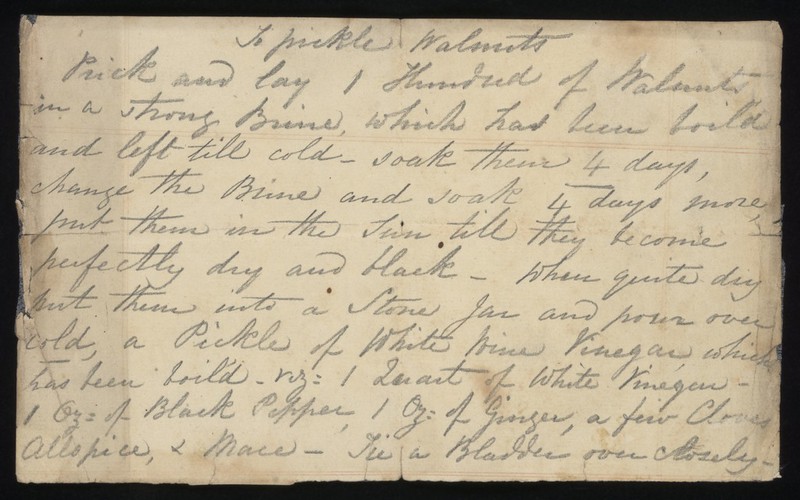 To pickle Walnuts
Prick and lay 1 Hundred of Walnuts
in a strong Brine, which has been boild
and left till cold - soak them 4 days,
change the Brine and soak 4 days more,
put them in the Sun till they become
perfectly dry and black - when quite dry
put them into a Stone Jar and pour over
cold, a Pickle of White Wine Vinegar, which
has been boil'd - viz= 1 Quart of White Vinegar -
1 Oz= of Black Pepper, 1 Oz= of Ginger, a few Cloves
Allspice, & Mace - Tie a Bladder over closely -